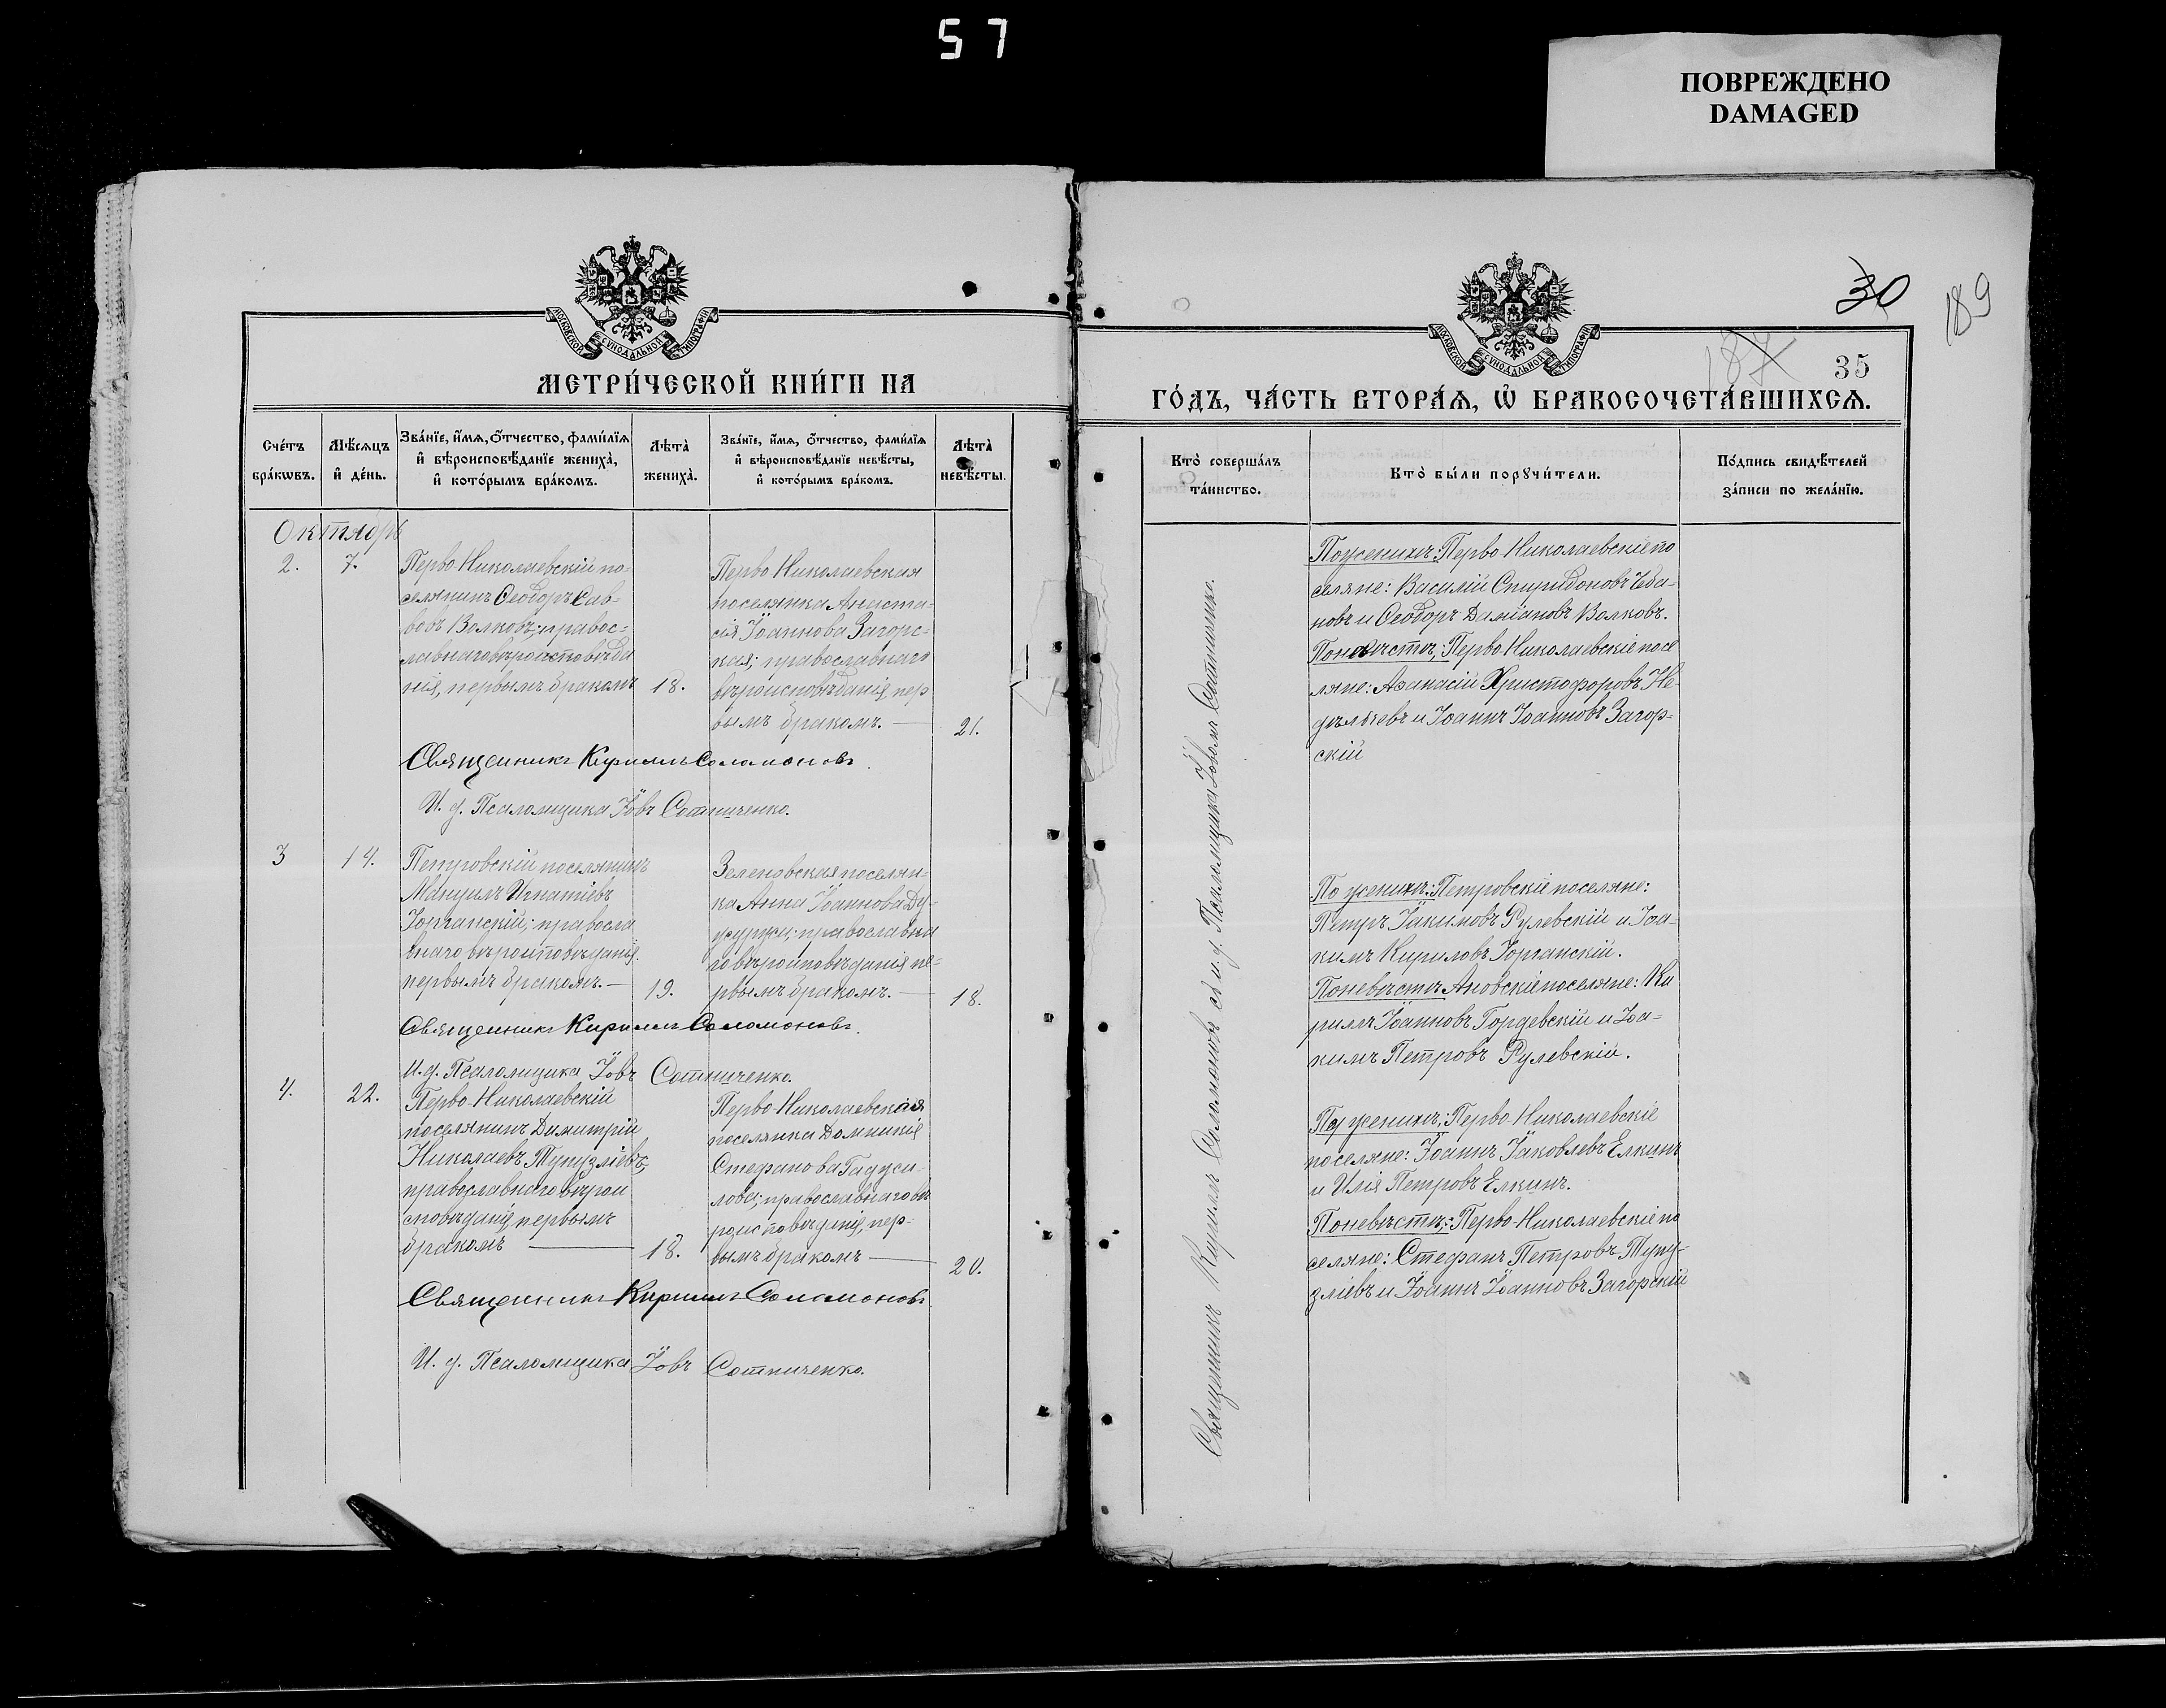 57
ПОВРЕЖДЕНО
DAMAGED
МОСКОВСКОЙ СѴНОДАЛЬНОЙ ТИПОГРАФІИ
МЕТРИ́ЧЕСКОЙ КНИ́ГИ НА
Сче́тъ бра́кѡвъ.
Мѣ́сяцъ и҆ де́нь.
Зва́нїе, и҆́мѧ, ѻ҆́тчество, фами́лїѧ и҆ вѣроисповѣ́данїе жениха̀, и҆ кото́рымъ бра́комъ.
Лѣта̀ жениха̀.
Зва́нїе, и҆́мѧ, ѻ҆́тчество, фами́лїѧ и҆ вѣроисповѣ́данїе невѣ́сты, и҆ кото́рымъ бра́комъ.
Лѣта̀ невѣ́сты.
Октябрь
2.
7.
Перво Николаевскій по-
селянинъ Ѳеодоръ Сав-
вовъ Волковъ; правос-
лавнаго вѣроисповѣда
нія, первымъ бракомъ
18.
Перво Николаевская
поселянка Анаста-
сія Іоаннова Загорс-
кая; православнаго
вѣроисповѣданія, пер
вымъ бракомъ. —
21.
Священникъ Кириллъ Соломоновъ.
И. д. Псаломщика Іовъ Сотниченко.
3
14.
Петровскій поселянинъ
Мануилъ Игнатіевъ
Горганскій; правосла
внаго вѣроисповѣданія.
первымъ бракомъ. —
19.
Зеленовская поселян-
ка Анна Іоаннова
православна
го вѣроисповѣданія пе-
рвымъ бракомъ. —
18.
Священникъ Кириллъ Соломоновъ.
И. д. Псаломщика Іовъ Сотниченко.
4.
22.
Перво-Николаевскій
поселянинъ Димитрій
Николаевъ Тупузліевъ;
православнаго вѣрои
сповѣданія первымъ
бракомъ —
18.
Перво-Николаевская
поселянка Домникія
Стефанова
православнаго вѣ
роисповѣданія, пер-
вымъ бракомъ —
20.
Священникъ Кириллъ Соломоновъ
И. д. Псаломщика Іовъ Сотниченко.
30
189
187
35
МОСКОВСКОЙ СѴНОДАЛЬНОЙ ТИПОГРАФІИ
ГО́ДЪ, ЧА́СТЬ ВТОРА́Ѧ, Ѡ҆ БРАКОСОЧЕТА́ВШИХСѦ.
Кто̀ соверша́лъ та́инство.
Кто̀ бы́ли порꙋчи́тели.
По́дпись свидѣ́телей за́писи по жела́нїю.
Священникъ Кириллъ Соломоновъ съ и. д. Псаломщика Іовомъ Сотниченко.
По женихѣ: Перво Николаевскіе по
селяне: Василій Спиридоновъ Ива-
новъ и Ѳеодоръ Даміановъ Волковъ.
По невѣстѣ: Перво Николаевскіе посе
ляне: Аѳанасій Христофоровъ Не-
дѣльевъ и Іоаннъ Іоанновъ Загор-
скій
По женихѣ: Петровскіе поселяне:
Петръ Іакимовъ Рулевскій и Іоа-
кимъ Кириловъ Горганскій.
По невѣстѣ Ановскіе поселяне: Ки
риллъ Іоанновъ Гордевскій и Іоа-
кимъ Петровъ Рулевскій.
По женихѣ: Перво-Николаевскіе
поселяне: Іоаннъ Іаковлевъ Елкинъ
и Илія Петровъ Елкинъ.
По невѣстѣ: Перво-Николаевскіе по
селяне: Стефанъ Петровъ Тупу-
зліевъ и Іоаннъ Іоанновъ Загорскій